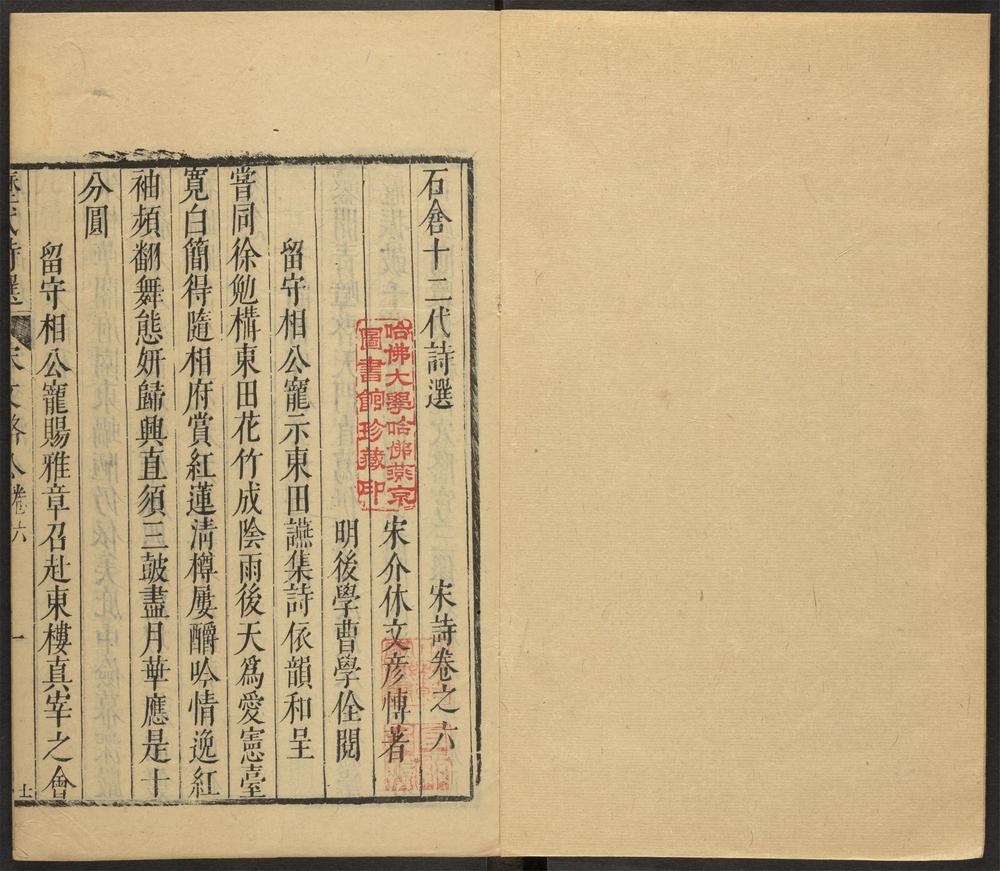 石倉十二代詩選
宋詩卷之六
宋介休文彦愽著
明後學曹學佺閱
留守相公寵示東田讌集詩依韻和呈
嘗同徐勉構東田花竹成陰雨後天爲愛憲臺
寛白簡得隨相府賞紅蓮淸樽屢釂吟情逸紅
袖頻翻舞態妍歸興直須三鼓盡月華應是十
分圓
留守相公寵賜雅章召赴東樓真率之會
歷代詩選
宋文潞公卷六
一
哈佛大學哈佛燕京
圖書館珍藏印